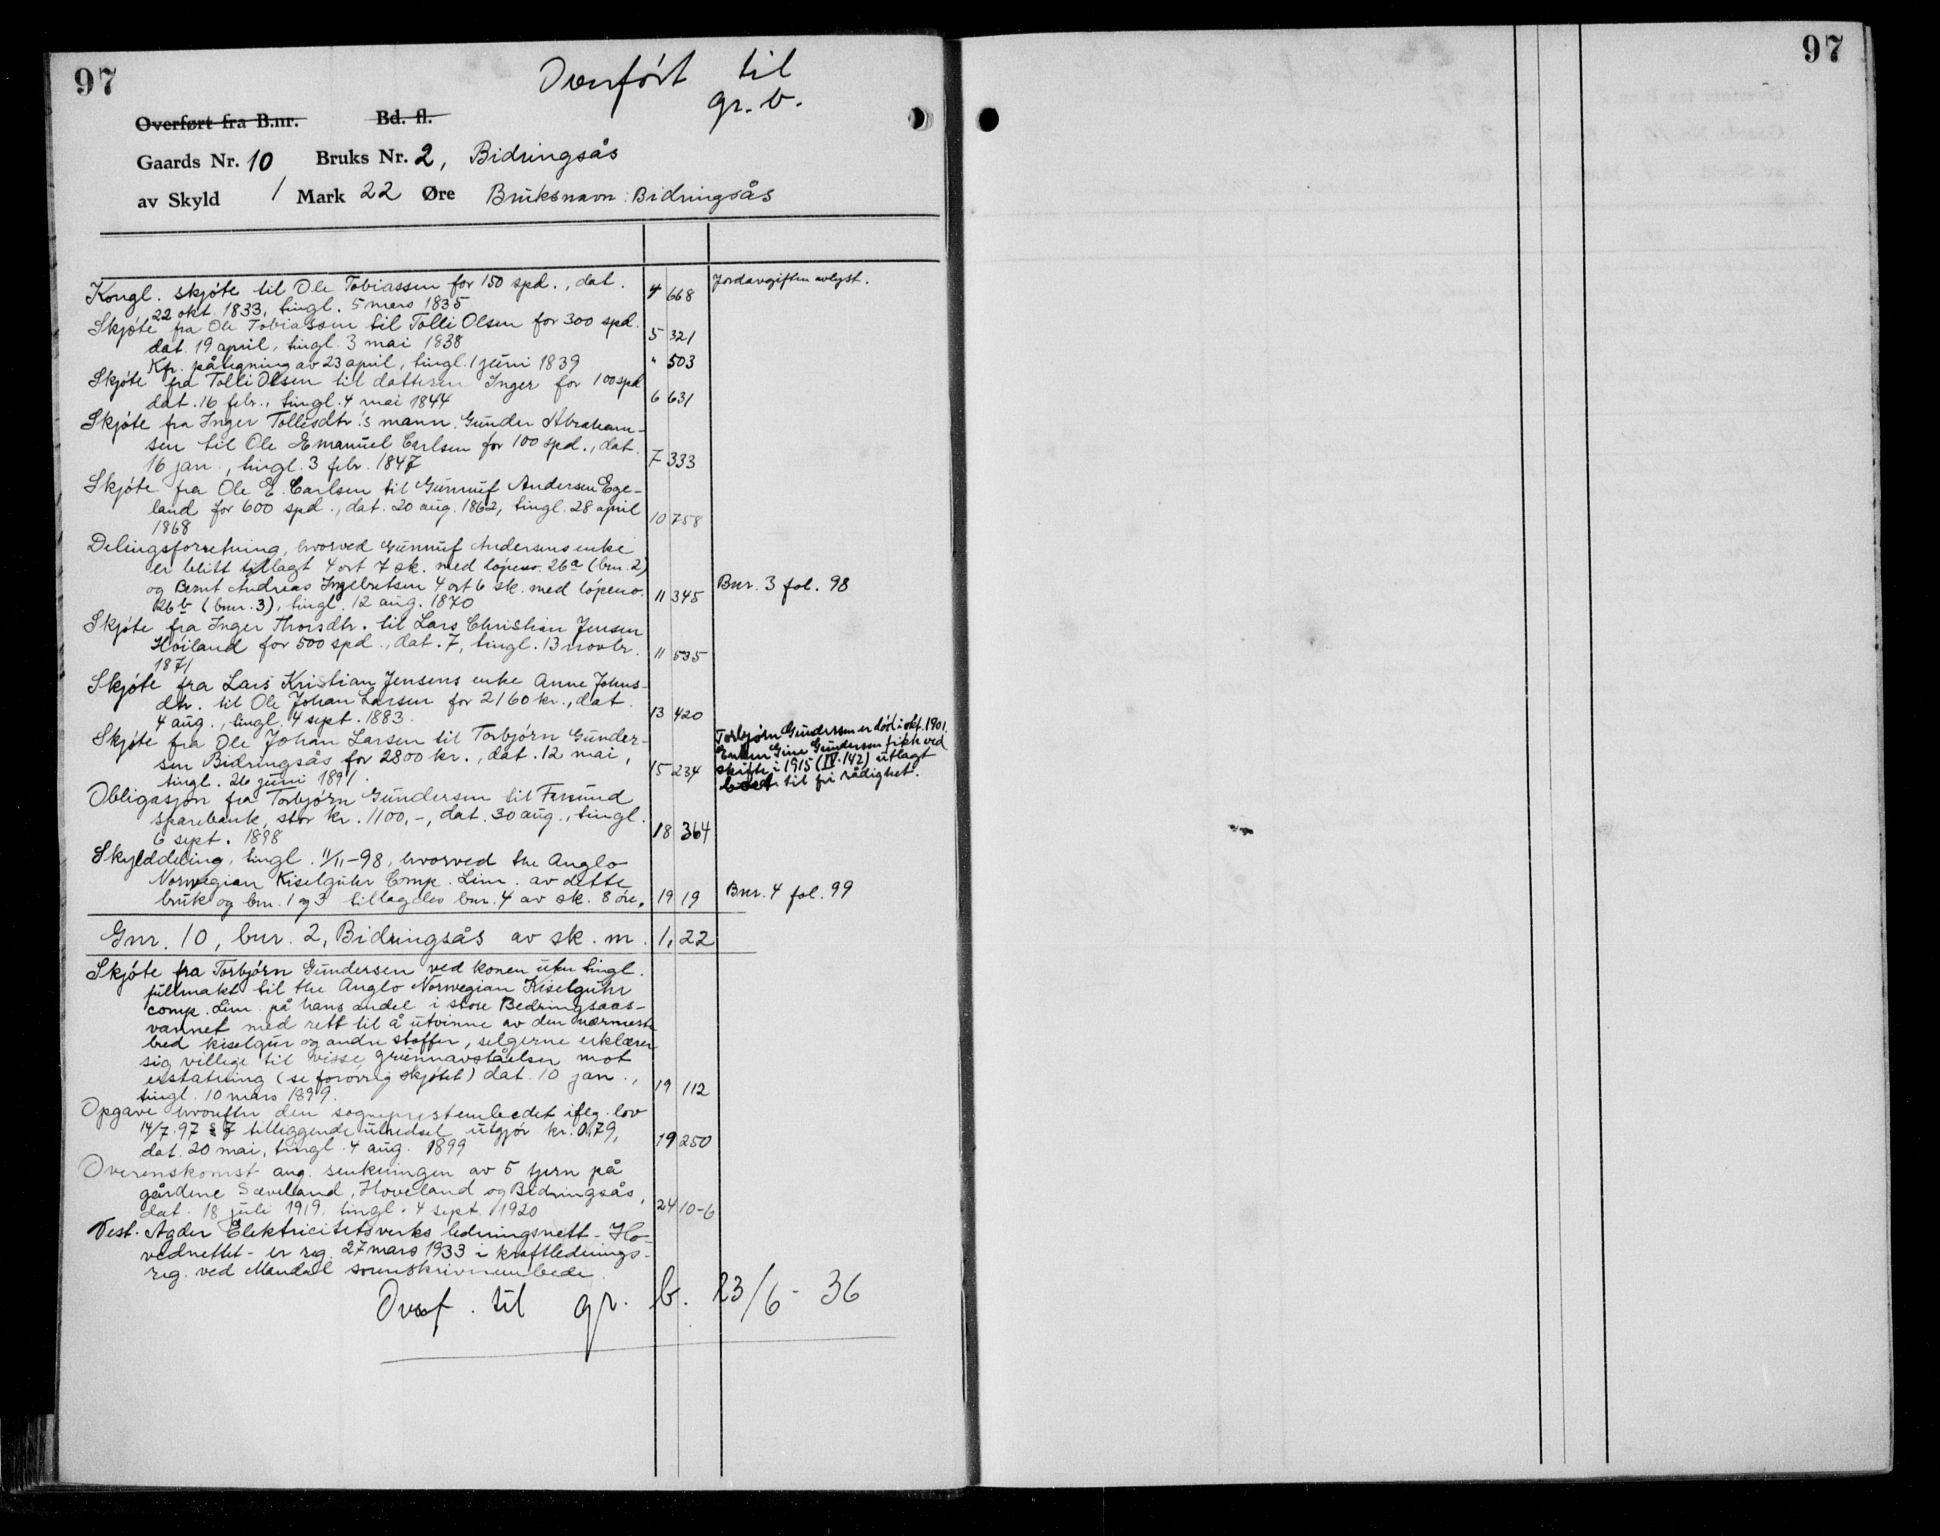 97
97
Overført til
gr. b.
Overført fra B.nr. Bd. fl.
Gaards Nr. 10 Bruks Nr. 2, Bidringsås
av Skyld 1 Mark 22 Øre Bruksnavn: Bidringsås
Kongl. skjøte til Ole Tobiassen for 150 spd., dat. 4 668 Jordavgiften avlyst.
22 okt. 1833, tingl. 5 mars 1835
Skjøte fra Ole Tobiassen til Tolli Olsen for 300 spd.
dat. 19 april, tingl. 3 mai 1838 5 321
Kfr. påtegning av 23 april, tingl. 1 juni 1839 " 503
Skjøte fra Tolli Olsen til datteren Inger for 100 spd
dat. 16 febr., tingl. 4 mai 1844 6 631
Skjøte fra Inger Tollisdtr.'s mann Gunder Abraham-
sen til Ole Emanuel Carlsen for 100 spd., dat.
16 jan., tingl. 3 febr. 1847 7 333
Skjøte fra Ole E. Carlsen til Gunnuf Andersen Ege-
land for 600 spd., dat. 20 aug. 1862, tingl. 28 april
1868 10 758
Delingsforretning, hvorved Gunnuf Andersens enke
er blitt tillagt 4 ort 7 sk. med løpeno. 26a (bnr. 2)
og Bernt Andreas Ingebretsen 4 ort 6 sk. med løpeno. 11 345 Bnr. 3 fol. 98
26b (bnr. 3), tingl. 12 aug. 1870
Skjøte fra Inger Thorsdtr. til Lars Christian Jensen
Høiland for 500 spd., dat. 7, tingl. 13 novbr. 11 535
1871
Skjøte fra Lars Kristian Jensens enke Anne Johns-
dtr. til Ole Johan Larsen for 2160 kr., dat.
4 aug., tingl. 4 sept. 1883. 13 420
Skjøte fra Ole Johan Larsen til Torbjørn Gunder-
sen Bidringsås for 2800 kr., dat. 12 mai,
tingl. 26 juni 1891. 15 234
Torbjørn Gundersen er død i okt. 1901.
Enken Gine Gundersen fikk ved
skifte i 1915 (IV. 142) utlagt
boet til fri rådighet.
Obligasjon fra Torbjørn Gundersen til Farsund
sparebank, stor kr. 1100,-, dat. 30 aug., tingl.
6 sept. 1898 18 364
Skylddeling, tingl. 11/11-98, hvorved the Anglo
Norwegian Kiselguhr Comp. Lim. av dette
bruk og bnr. 1 og 3 tillagdes bnr. 4 av sk. 8 øre. 19 19 Bnr. 4 fol. 99
Gnr. 10, bnr. 2, Bidringsås av sk. m. 1,22
Skjøte fra Torbjørn Gundersen ved konen uten tingl.
fullmakt til the Anglo Norwegian Kiselguhr
comp. Lim. på hans andel i store Bedringsaas-
vannet med rett til å utvinne av den nærmeste
bed kiselgur og andre stoffer, selgerne erklærer
sig villige til visse grunnavståelser mot
erstatning (se forøvrig skjøtet) dat. 10 jan.,
tingl. 10 mars 1899. 19 112
Opgave hvorefter den sogneprestembedet ifølg. lov
14/7.97 § 7 tilleggende utredsel utgjør kr. 0,79,
dat. 20 mai, tingl. 4 aug. 1899 19 250
Overenskomst ang. senkningen av 5 tjern på
gårdene Sæveland, Hoveland og Bidringsås,
dat. 18 juli 1919, tingl. 4 sept. 1920 24 10-6
Vest-Agder Elektricitetsverks ledningsnett - Ho-
vednettet - er reg. 27 mars 1933 i kraftlednings-
reg. ved Mandal sorenskriverembede.
Overf. til gr. b. 23/6 - 36